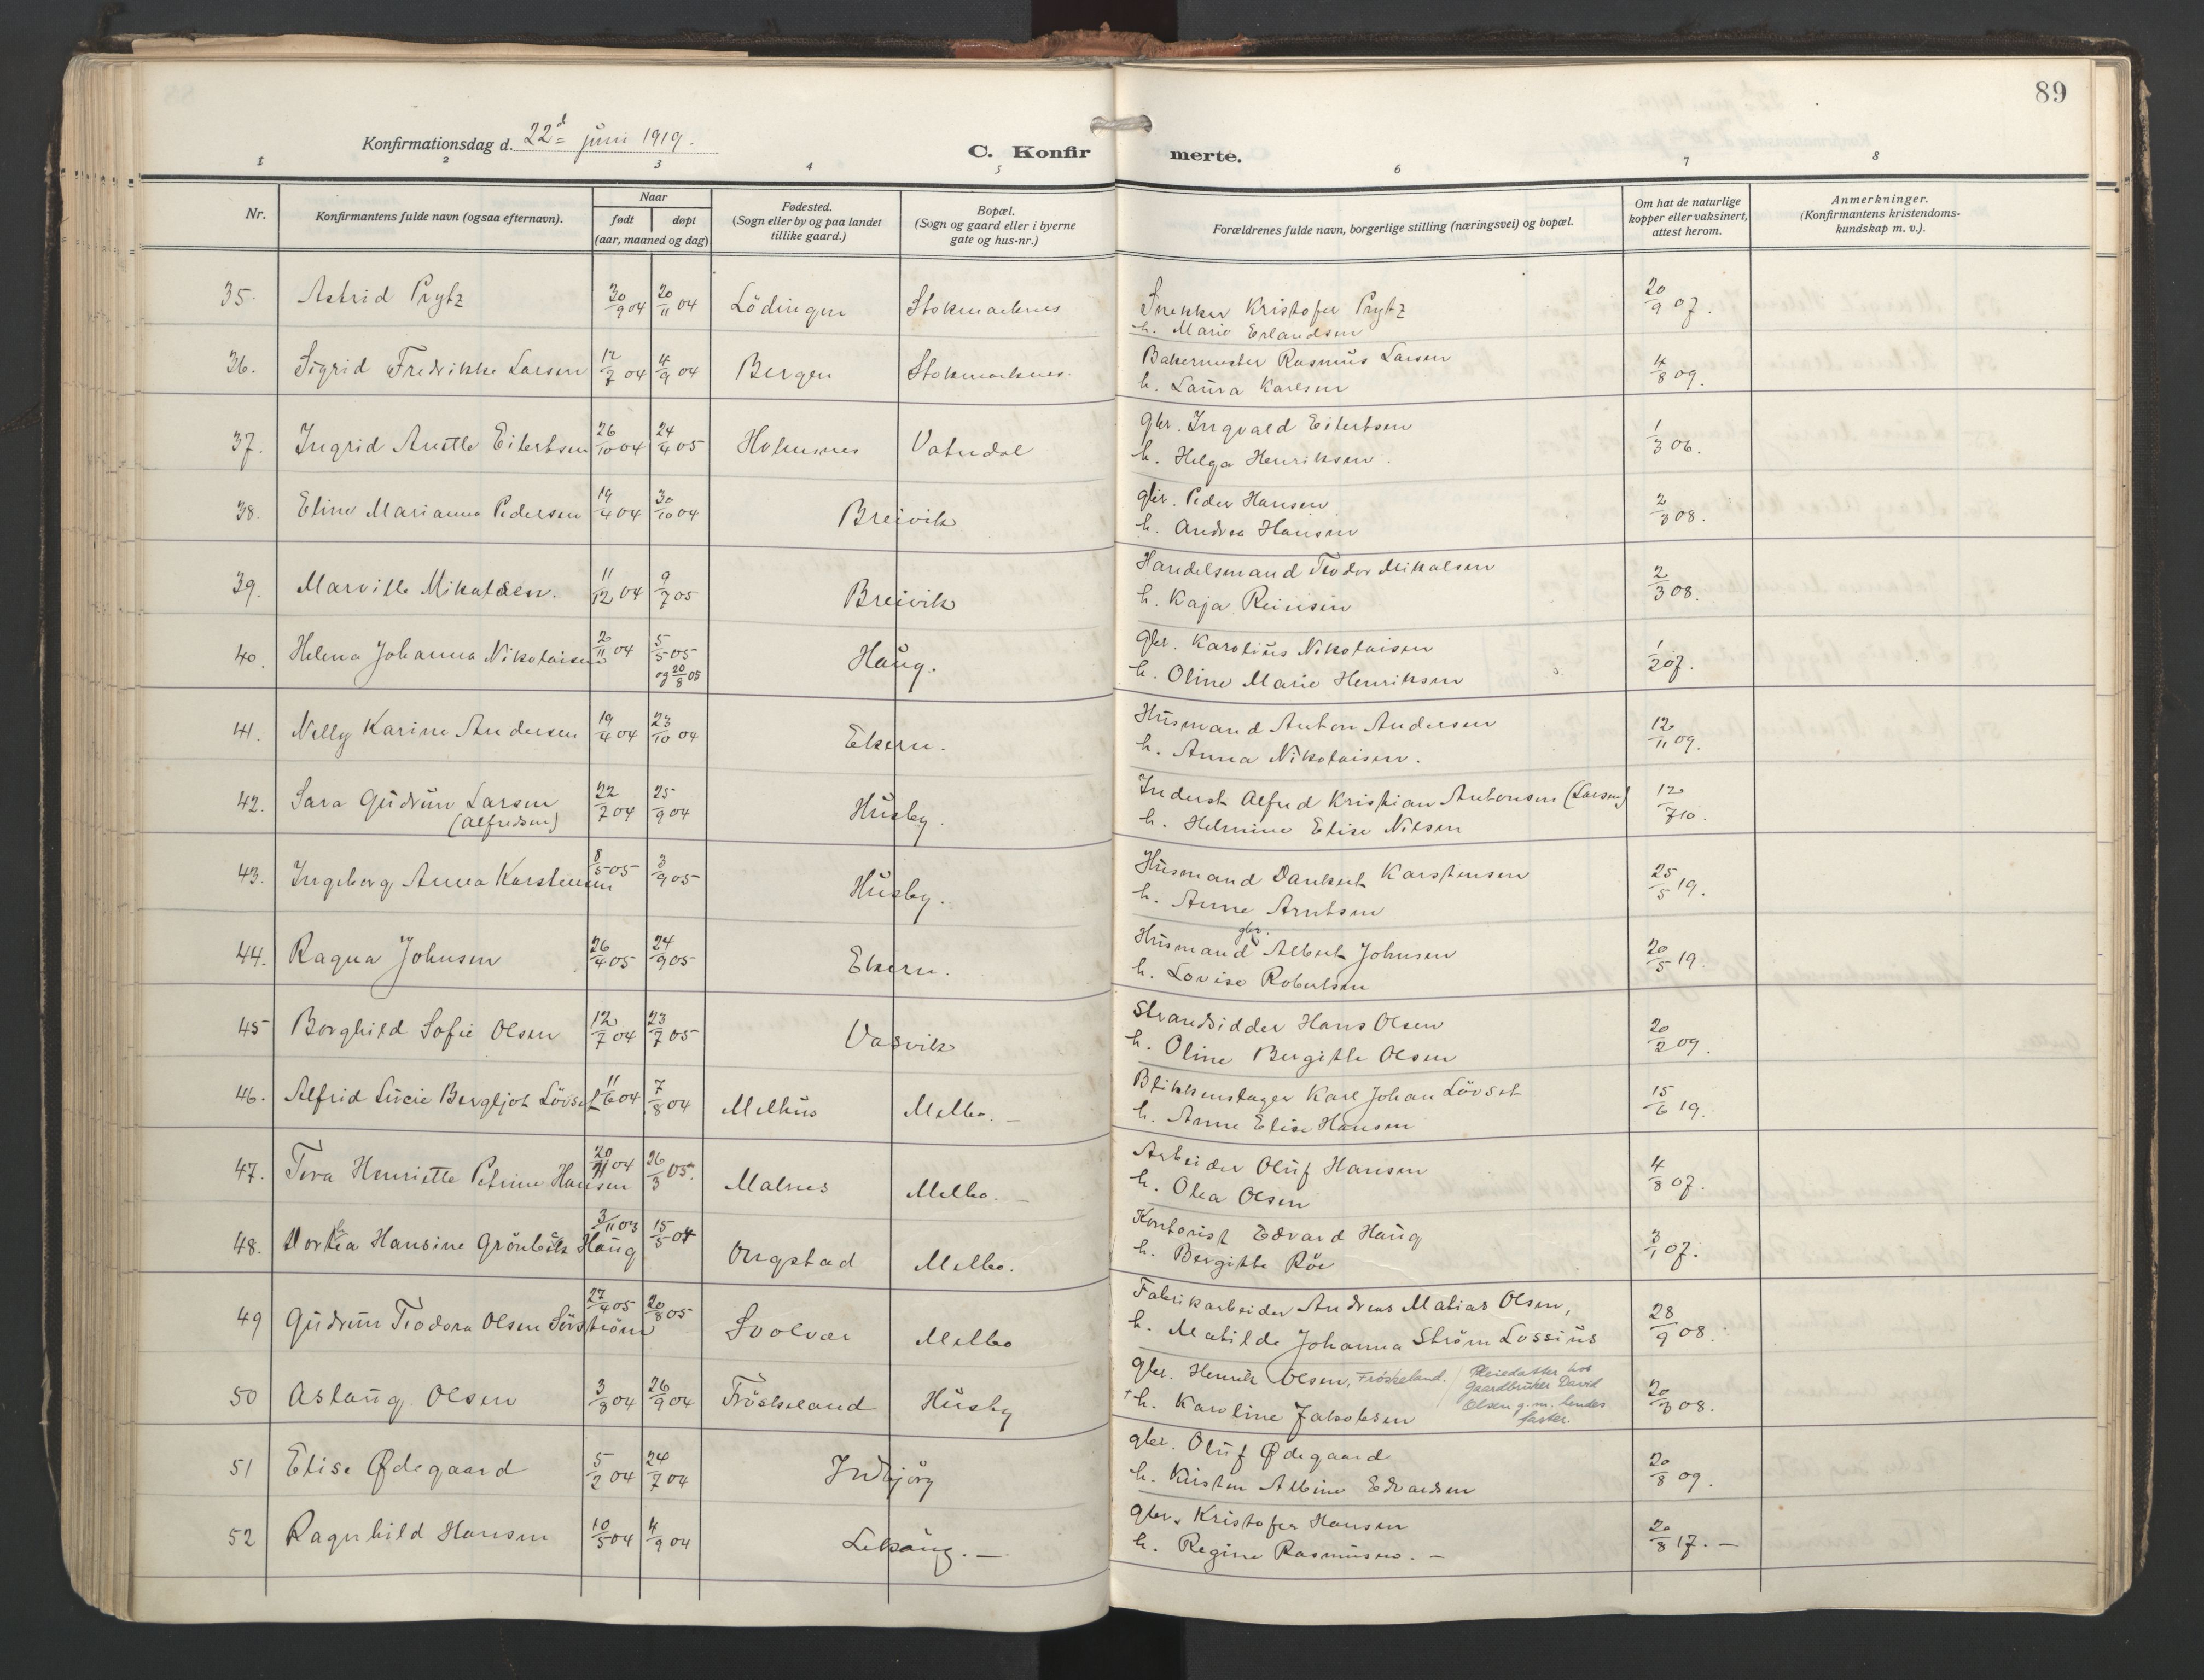 89
Konfirmationsdag d. 22d juni 1919.
C. Konfirmerte.
1 2 3 4 5 6 7 8
Nr.
Konfirmantens fulde navn (ogsaa efternavn).
Naar
født døpt
(aar, maaned og dag)
Fødested.
(Sogn eller by og paa landet
tillike gaard.)
Bopæl.
(Sogn og gaard eller i byerne
gate og hus-nr.)
Forældrenes fulde navn, borgerlige stilling (næringsvei) og bopæl.
Om hat de naturlige
kopper eller vaksinert,
attest herom.
Anmerkninger.
(Konfirmantens kristendoms-
kundskap m. v.).
35. Astrid Prytz 30/9 04 20/11 04 Lödingen Stokmarknes Snekker Kristofer Prytz 20/9 07.
h. Marie Erlandsen
36. Sigrid Fredrikke Larsen 12/7 04 4/9 04 Bergen Stokmarknes. Bakermester Rasmus Larsen 4/8 09.
h. Laura Karlsen
37. Ingrid Anette Eilertsen 26/10 04 24/4 05 Holmsnes Vatndal gbr. Ingvald Eilertsen 1/3 06.
h. Helga Henriksen.
38. Eline Marianna Pedersen 19/4 04 30/10 04 Breivik gbr. Peder Hansen 2/3 08.
h. Andrea Hansen
39. Marville Mikalsen. 11/12 04 9/7 05 Breivik Handelsmand Teodor Mikalsen 2/3 08.
h. Kaja Reinsen
40. Helena Johanna Nikolaisen 2/11 04 5/5 05 Haug. gbr. Karolius Nikolaisen 1/2 07.
og 20/8 05 h. Oline Marie Henriksen
41. Nelly Karine Andersen 19/4 04 23/10 04 Ekern. Husmand Anton Andersen 12/11 09.
h. Anna Nikolaisen.
42. Sara Gudrun Larsen 22/7 04 25/9 04 Husby. Inderst Alfred Kristian Antonsen (Larsen) 12/7 10.
(Alfredsen) h. Helmine Elise Nilsen
43. Ingeborg Anna Karstensen 8/5 05 3/9 05 Husby. Husmand Dankert Karstensen 25/5 19.
h. Anne Arntsen
44. Ragna Johnsen 26/4 05 24/9 05 Ekern. Husmand gbr. Albert Johnsen 20/5 19.
h. Lovise Robertsen
45 Borghild Sofie Olsen 12/7 04 23/7 05 Vasvik Strandsidder Hans Olsen 20/2 09.
h. Oline Bergitte Olsen
46. Alfrid Lucie Bergljot Lövset 11/6 04 7/8 04 Melhus Melbo. – Blikkenslager Karl Johan Lövset 15/6 19.
h. Anne Elise Hansen
47. Tora Henriette Petrine Hansen 20/11 04 26/3 05. Malnes Melbo. – Arbeider Oluf Hansen 4/8 07.
h. Olea Olsen
48. Dorthea Hansine Grönbeck Haug 3/11 03 15/5 04 Ongstad Melbo. Kontorist Edvard Haug 3/1 07.
h. Bergitte Röe
49 Gudrun Teodora Olsen Sörström 27/4 05 20/8 05 Svolvær Melbo Fabrikarbeider Andreas Matias Olsen, 28/9 08.
h. Matilde Johanna Ström Lossius
50 Aslaug Olsen 3/8 04 26/9 04 Fröskeland Husby gbr. Henrik Olsen, Fröskeland. 20/3 08.
† h. Karoline Jakobsen
Pleiedatter hos
gaardbruker David
Olsen g. m. hendes
faster.
51 Elise Ødegaard 5/2 04 24/7 04 Indbjörg gbr. Oluf Ødegaard 20/8 09.
h. Kirsten Albine Edvardsen
52 Ragnhild Hansen 10/5 04 4/9 04 Lekang. – gbr. Kristofer Hansen 20/8 17. –
h. Regine Rasmussen. –